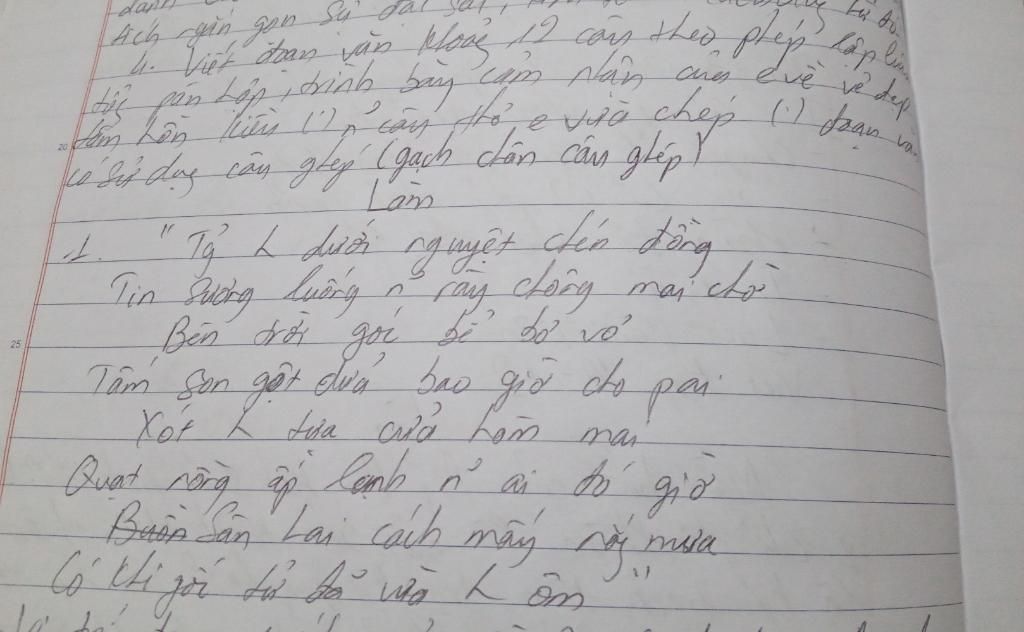 ách ngắn gọn sử
4. Viết đoạn văn khoảng 12 câu theo phép lập luận
tổng pân hợp, trình bày cảm nhận của e về vẻ đẹp
tâm hồn Kiều (·) n~ câu thơ e vừa chép (·) đoạn văn
có sử dụng câu ghép (gạch chân câu ghép)
Làm
1. "Tg~ k dưới nguyệt chén đồng
Tin sương luống n~ rày chông mai chờ
Bên trời góc bể bơ vơ
Tấm son gột rửa bao giờ cho pai
Xót k tựa cửa hôm mai
Quạt nồng ấp lạnh n~ ai đó giờ
Buồn Sân Lai cách mấy nắng mưa
Có khi gốc tử đã vừa k ôm"